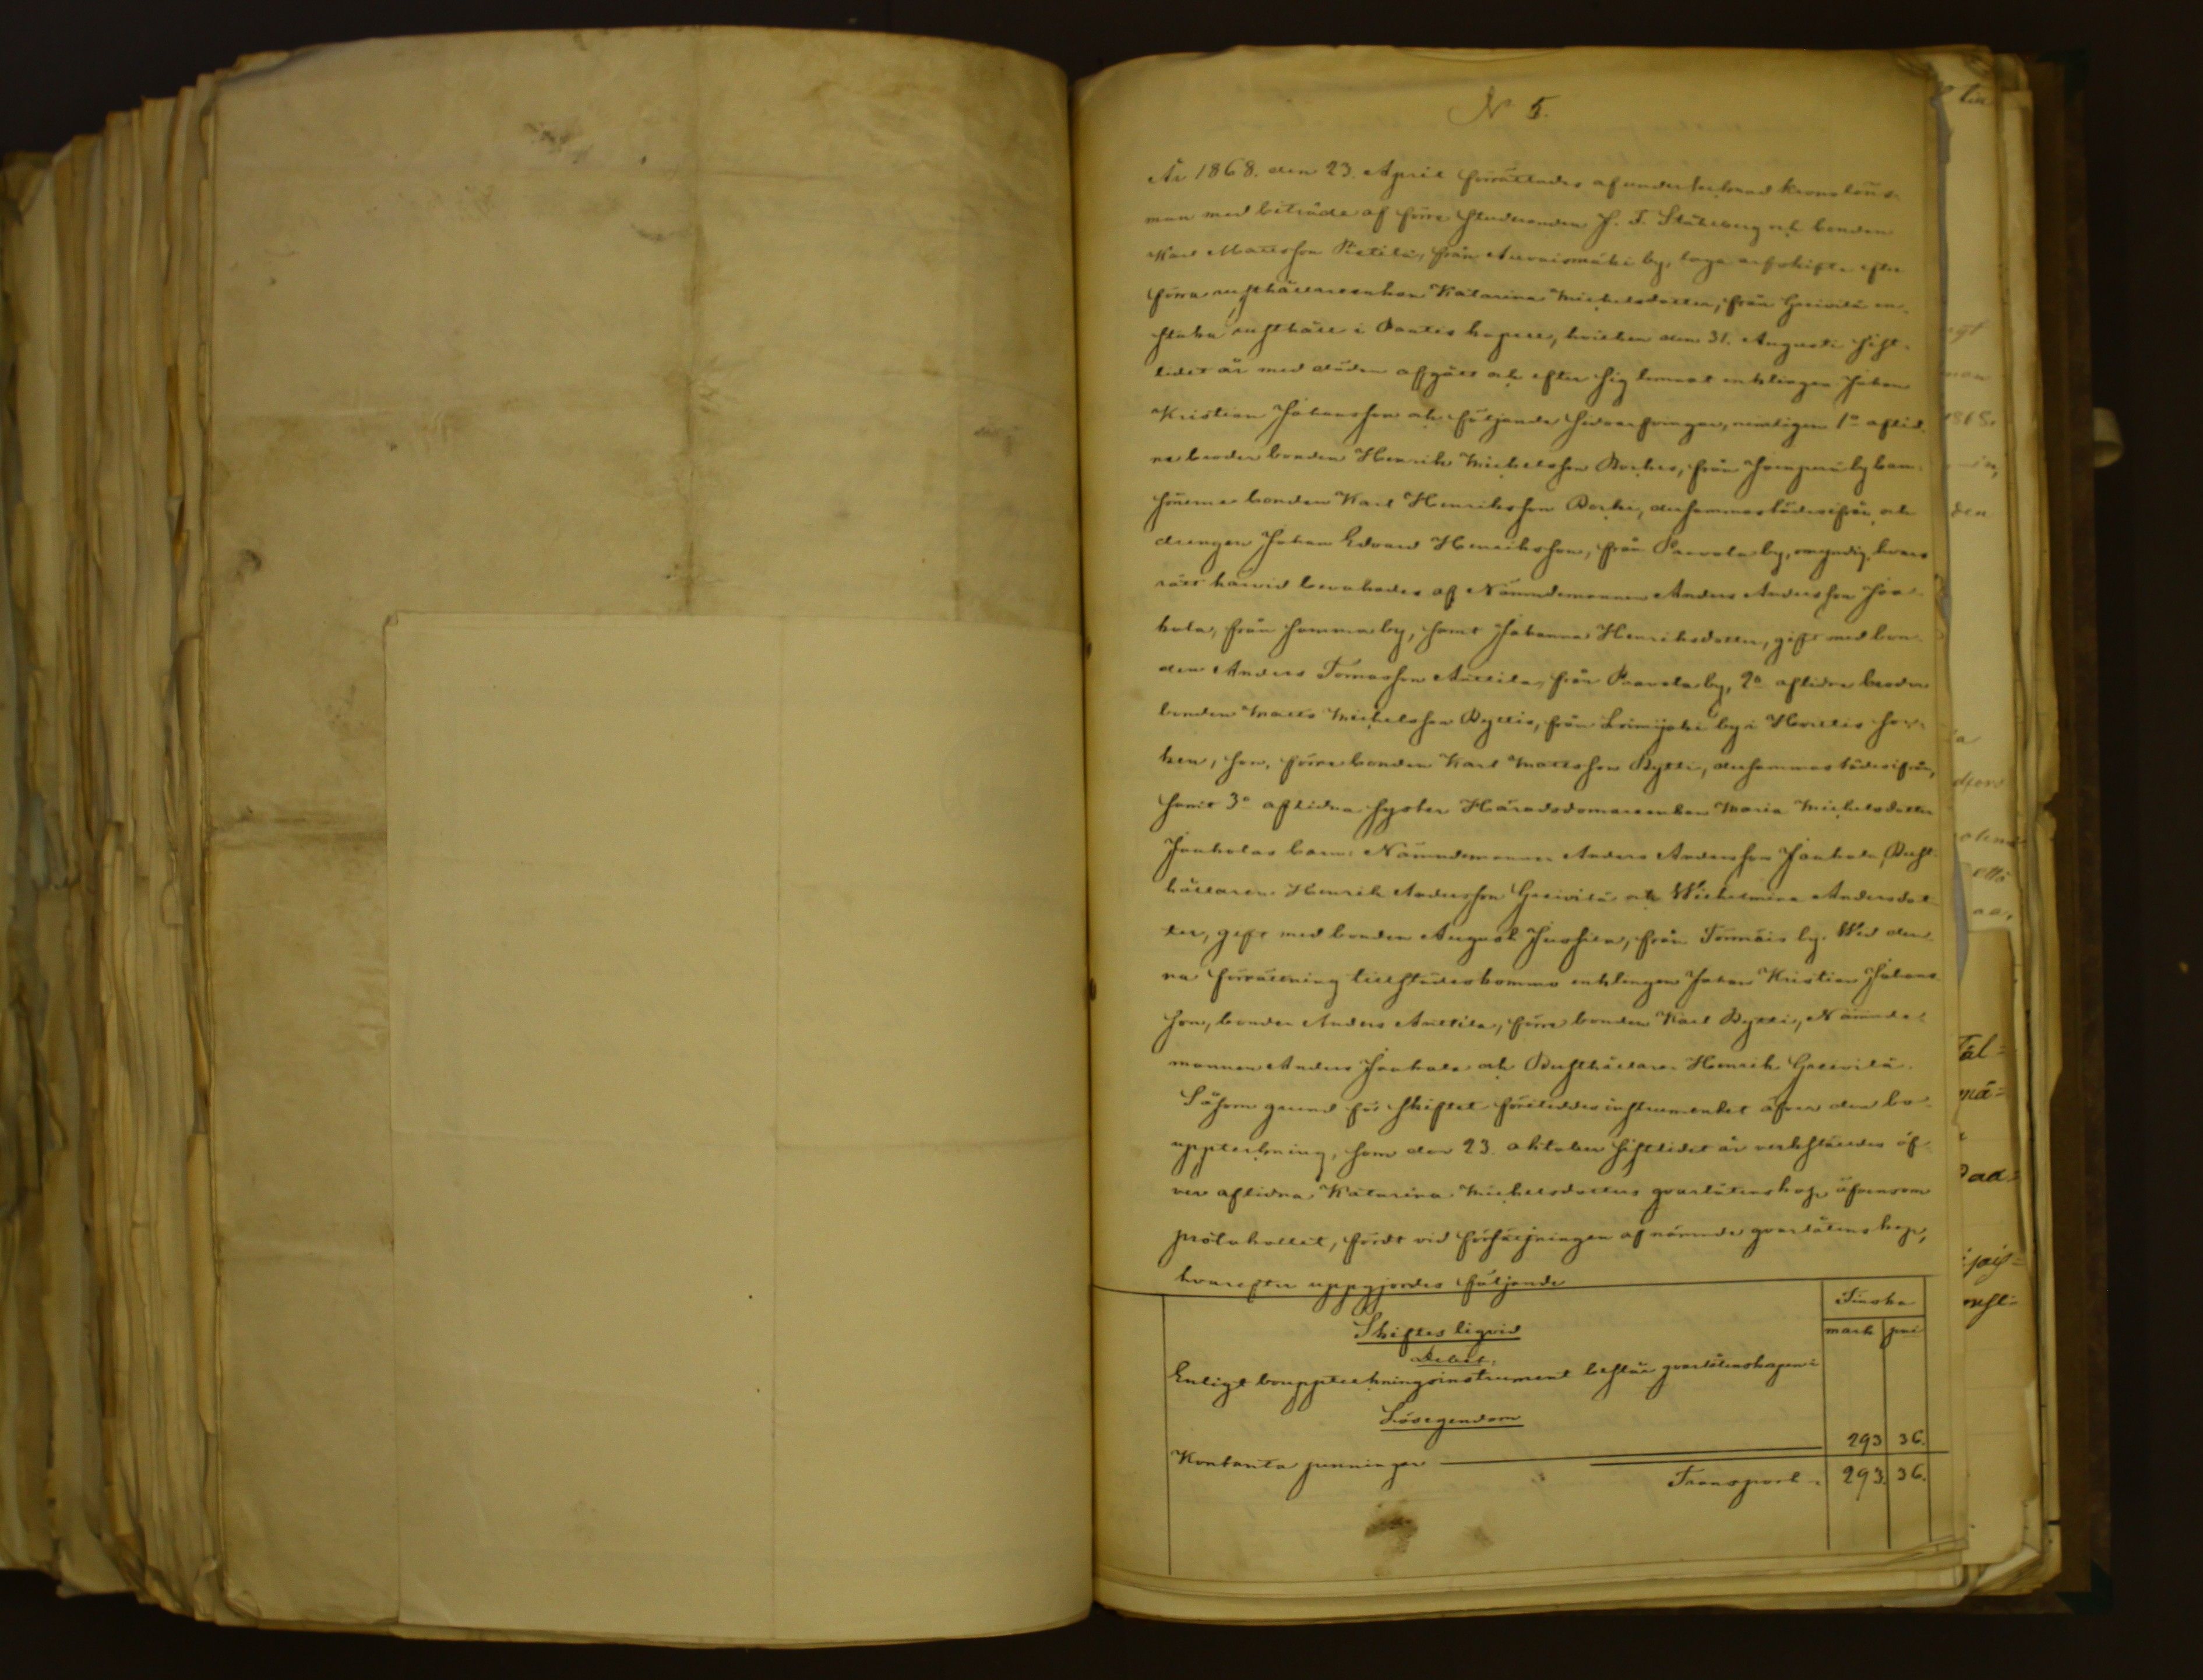 N 5.
År 1868. den 23. April förrättades af undertecknad kronoläns-
man med biträde af förre studeranden J. F. Ståhlberg och bonden
Karl Mattsson Pietilä, från Auvaismäki by, laga arfskifte efter
förra rusthållareenkan Katarina Michelsdotter, från en-
staka rusthåll i kapell, hvilken den 31. Augusti sist-
lidet år med döden afgått och efter sig lemnat enklingen Johan
Kristian Johansson och följande sidoarfvingar, nemligen 1o aflid.
ne broder bonden Henrik Michelsson från by barn.
sönerne bonden Karl Henriksson dersammastädesifrån, och
drengen Johan Edvard Henriksson, från Paavola by, omyndig, hvars
rätt härvid bevakades af Nämndemannen Anders Andersson Jaa-
kola, från samma by, samt Johanna Henriksdotter, gift med bon-
den Anders Tomasson Anttila, från Paavola by, 2o aflidne broder
bonden Matts Michelsson Rytti, från Loimijoki by i Hvittis soc-
ken, son, förre bonden Karl Mattsson Rytti, dersammastädesifrån,
samt 3o aflidna syster Häradsdomareenkan Maria Michelsdotter
Jaakolas barn: Nämndemannen Anders Andersson Jaakola, Rust-
hållaren Henrik Andersson och Wilhelmina Andersdot-
ter, gift med bonden August Jussila, från by. Wid den-
na förrättning tillstädeskommo enklingen Johan Kristian Johans-
son, bonden Anders Anttila, förre bonden Karl Rytti, Nämnde-
mannen Anders Jaakola och Rusthållaren Henrik
Såsom grund för skiftet företeddes instrumentet öfver den bo-
uppteckning, som den 23. oktober sistlidet år verkställdes öf-
ver aflidna Katarina Michelsdotters qvarlåtenskap, äfvensom
protokollet, fördt vid försäljningen af nämnde qvarlåtenskap,
hvarefter uppgjordes följande
Finska
Skiftesliqvid
mark pni
Debet.
Enligt bouppteckningsinstrument består qvarlåtenskapen i
Lösegendom
Kontanta penningar 293 36.
Transport 293. 36.